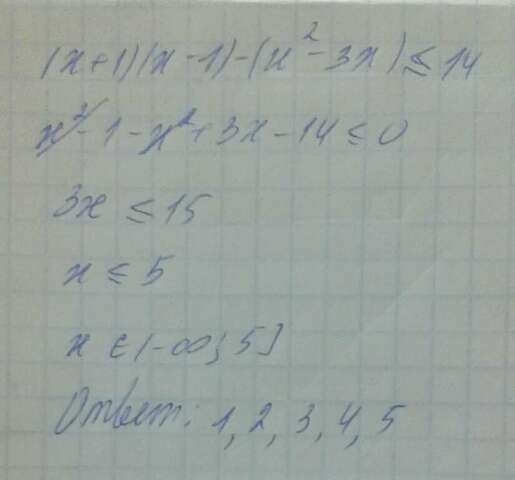 (x+1)(x-1)-(x²-3x)≤14
x²-1-x²+3x-14≤0
3x≤15
x≤5
x∈(-∞;5]
Ответ: 1, 2, 3, 4, 5